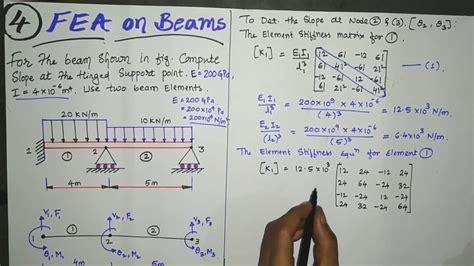 4 FEA on Beams
For the beam shown in fig. Compute
Slope at the Hinged Support point. E=200GPa,
I = 4×10⁻⁶m⁴. Use two beam Elements.
E = 200 GPa
= 200×10⁹ Pa
= 200×10⁹ N/m²
20 KN/m
10 KN/m
1
①
2
②
3
4m
5m
V₁, F₁
V₂, F₂
V₃, F₃
①
②
1
2
3
θ₁, M₁
θ₂, M₂
θ₃, M₃
To Det. the Slope at Node ② & ③. [θ₂, θ₃]
The Element Stiffness matrix for ①.
[K₁] = E₁I₁/l₁³ [12 6l -12 6l
6l 4l² -6l 2l²
-12 -6l 12 -6l
6l 2l² -6l 4l²] — (1).
E₁I₁/l₁³ = 200×10⁹ × 4×10⁻⁶/(4)³ = 12.5×10³ N/m
E₂I₂/(l₂)³ = 200×10⁹ × 4×10⁻⁶/(5)³ = 6.4×10³ N/m
The Element Stiffness Equⁿ for element ①
[K₁] = 12.5×10³ [12 24 -12 24
24 64 -24 32
-12 -24 12 -24
24 32 -24 64]